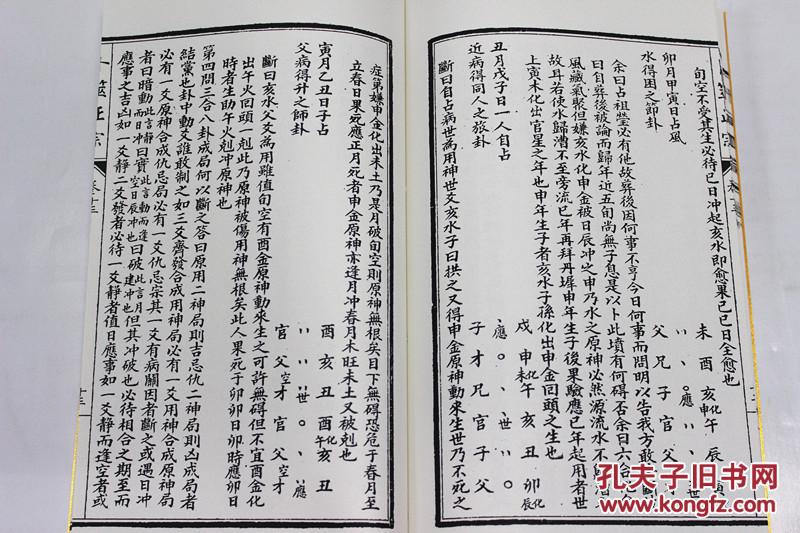 旬空不受其生必待己日冲起亥水即愈果己巳日全愈也
未酉亥申化午辰寅
、、、○應、、、世
父兄子官
卯月甲寅日占風
水得困之節卦
余曰占祖塋必有他故葬後因何事不亨今日何事而問明以告我方敢
曰自葬後被論而歸年近五旬尚無子息是以卜此墳有何碍否余曰六合化
風藏氣聚但嫌亥水化申金被日辰冲之申乃水之原神必然源流水不
故耳若使水歸漕不至旁流巳年再拜丹墀申年生子後果驗應巳年起用者世
上寅木化出官星之年也申年生子者亥水子孫化出申金回頭之生也
丑月戊子日一人自占
近病得同人之旅卦
戌申化未午亥丑卯化辰
應○、、世○
子才兄官子父
斷曰自占病世為用神世爻亥水子曰拱之又得申金原神動來生世乃不死之
症第嫌申金化出未土乃是月破旬空則原神無根矣目下無碍恐危于春月至
立春日果死應正月死者申金原神亦逢月冲春月木旺未土又被剋也
寅月乙丑日子占
父病得升之師卦
酉亥丑酉化午亥丑
、、、、、世○、、應
官父才官父才
斷曰亥水父爻為用雖值旬空有酉金原神動來生之可許無碍但不宜酉金化
出午火回頭一剋此乃原神被傷用神無根矣此人果死于卯日卯時應卯日
時者生助午火剋冲原神也
第四問三合八卦成局何以斷之答曰原用二神局則吉忌仇二神局則凶成局者
結黨也卦中動爻誰敢制之如三爻齊發合成用神局必有一爻用神合成原神局
必有一爻原神合成仇忌局必有一爻仇忌宗其一爻有病關因者斷之或遇日冲
者曰暗動此言靜而冲曰實空日辰冲也此言動而逢曰破建冲也此言月但其冲破也必待相合之期至而
應事之吉凶如一爻靜二爻發者必待一爻靜者值日應事如一爻靜而逢空者或
卜筮正宗
卷十三
十三
孔夫子旧书网
KONGFZ.COM